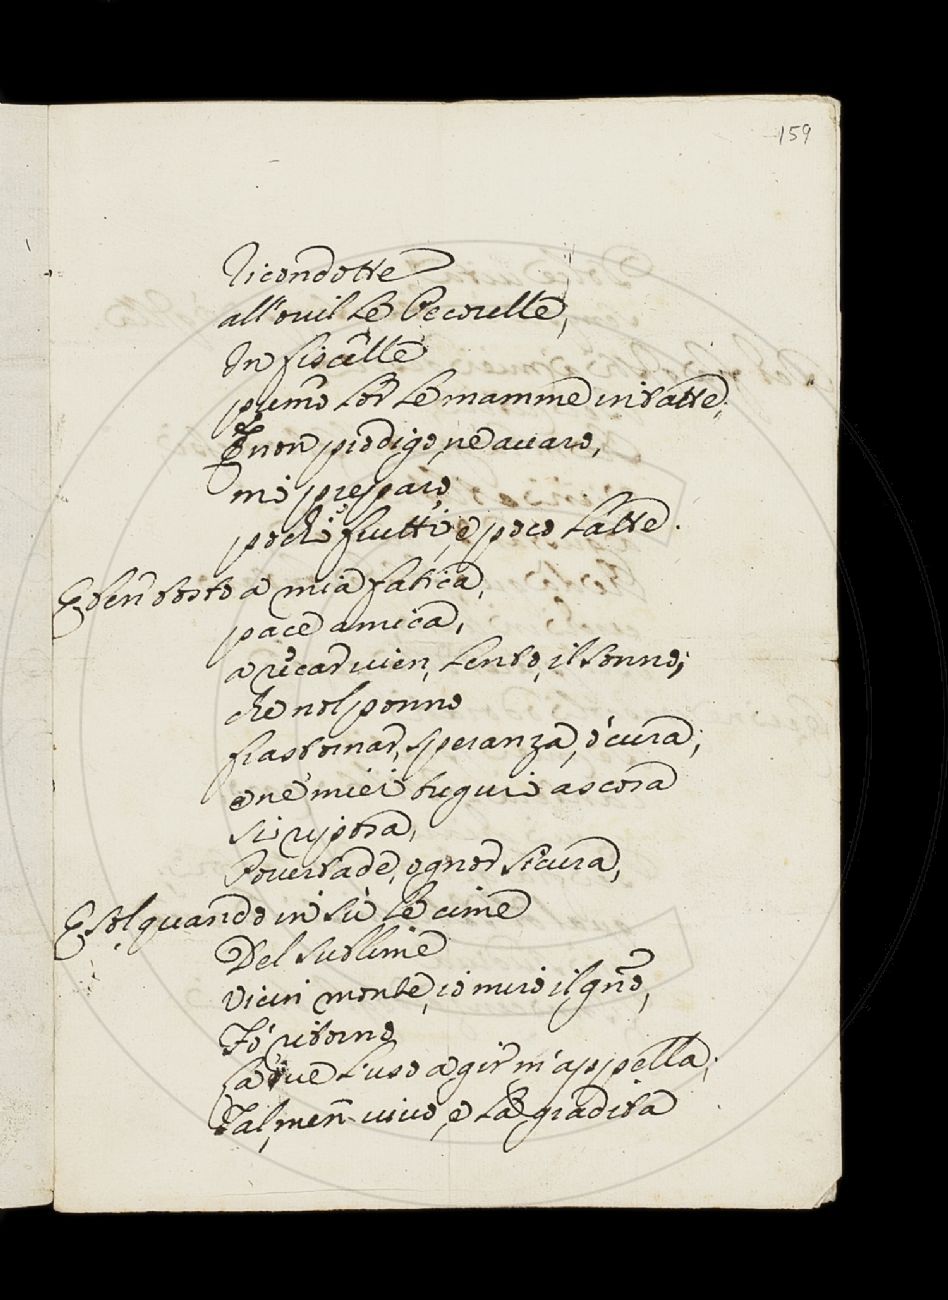 159
Ricondotte
all'ouil le Pecorelle,
In fiscelle
premo lor le mamme intatte;
E non prodigo, ne auaro,
mi preparo
pochi frutti, e poco latte.
E ben tosto a mia fatica,
pace amica,
a recar uien, lento, il sonno;
che nol ponno
frastornar, speranza, ò cura;
e ne' miei tuguri ascosa
si riposa,
Pouertade, ognor sicura,
E sol quando in sù le cime
Del sublime
vicin monte, io miro il gño,
Fò ritorno
la 've l'uso a gir m'appella;
Tal men uiuo, e la gradita